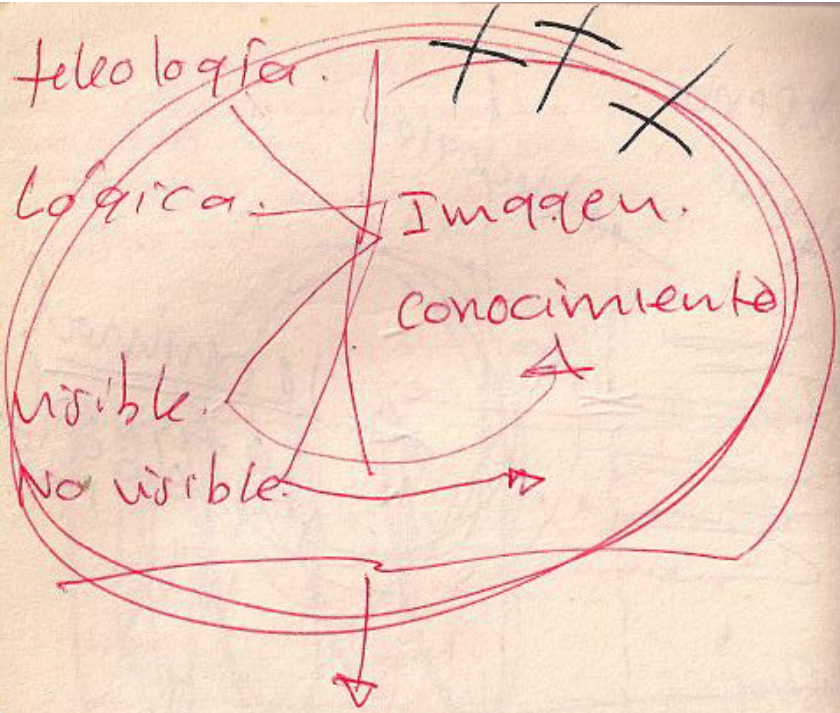 teleología.
Lógica.
Imagen.
conocimiento
visible.
No visible.